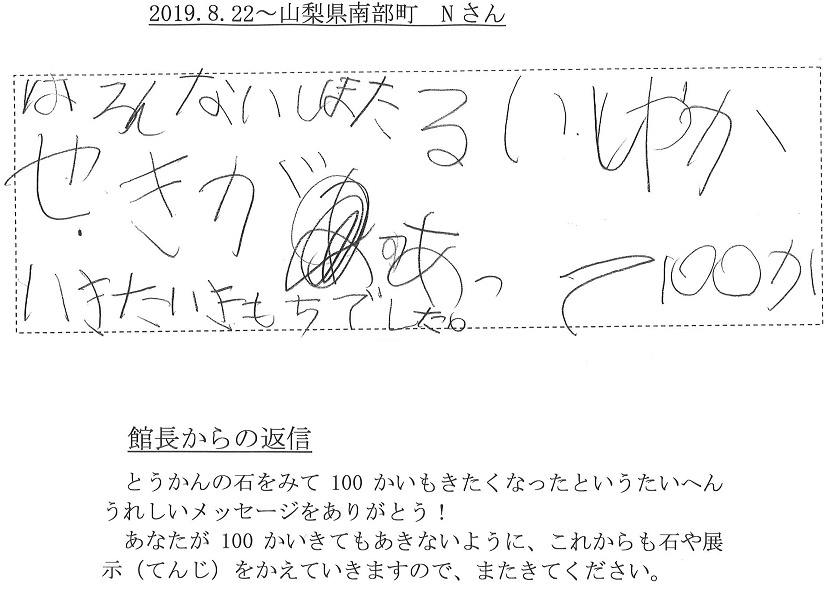 2019.8.22～山梨県南部町　Nさん
はろんないしほたるいしやか
せきがあって100か
いきたいきもちでした。
館長からの返信
とうかんの石をみて 100 かいもきたくなったというたいへん
うれしいメッセージをありがとう！
あなたが 100 かいきてもあきないように、これからも石や展
示（てんじ）をかえていきますので、またきてください。